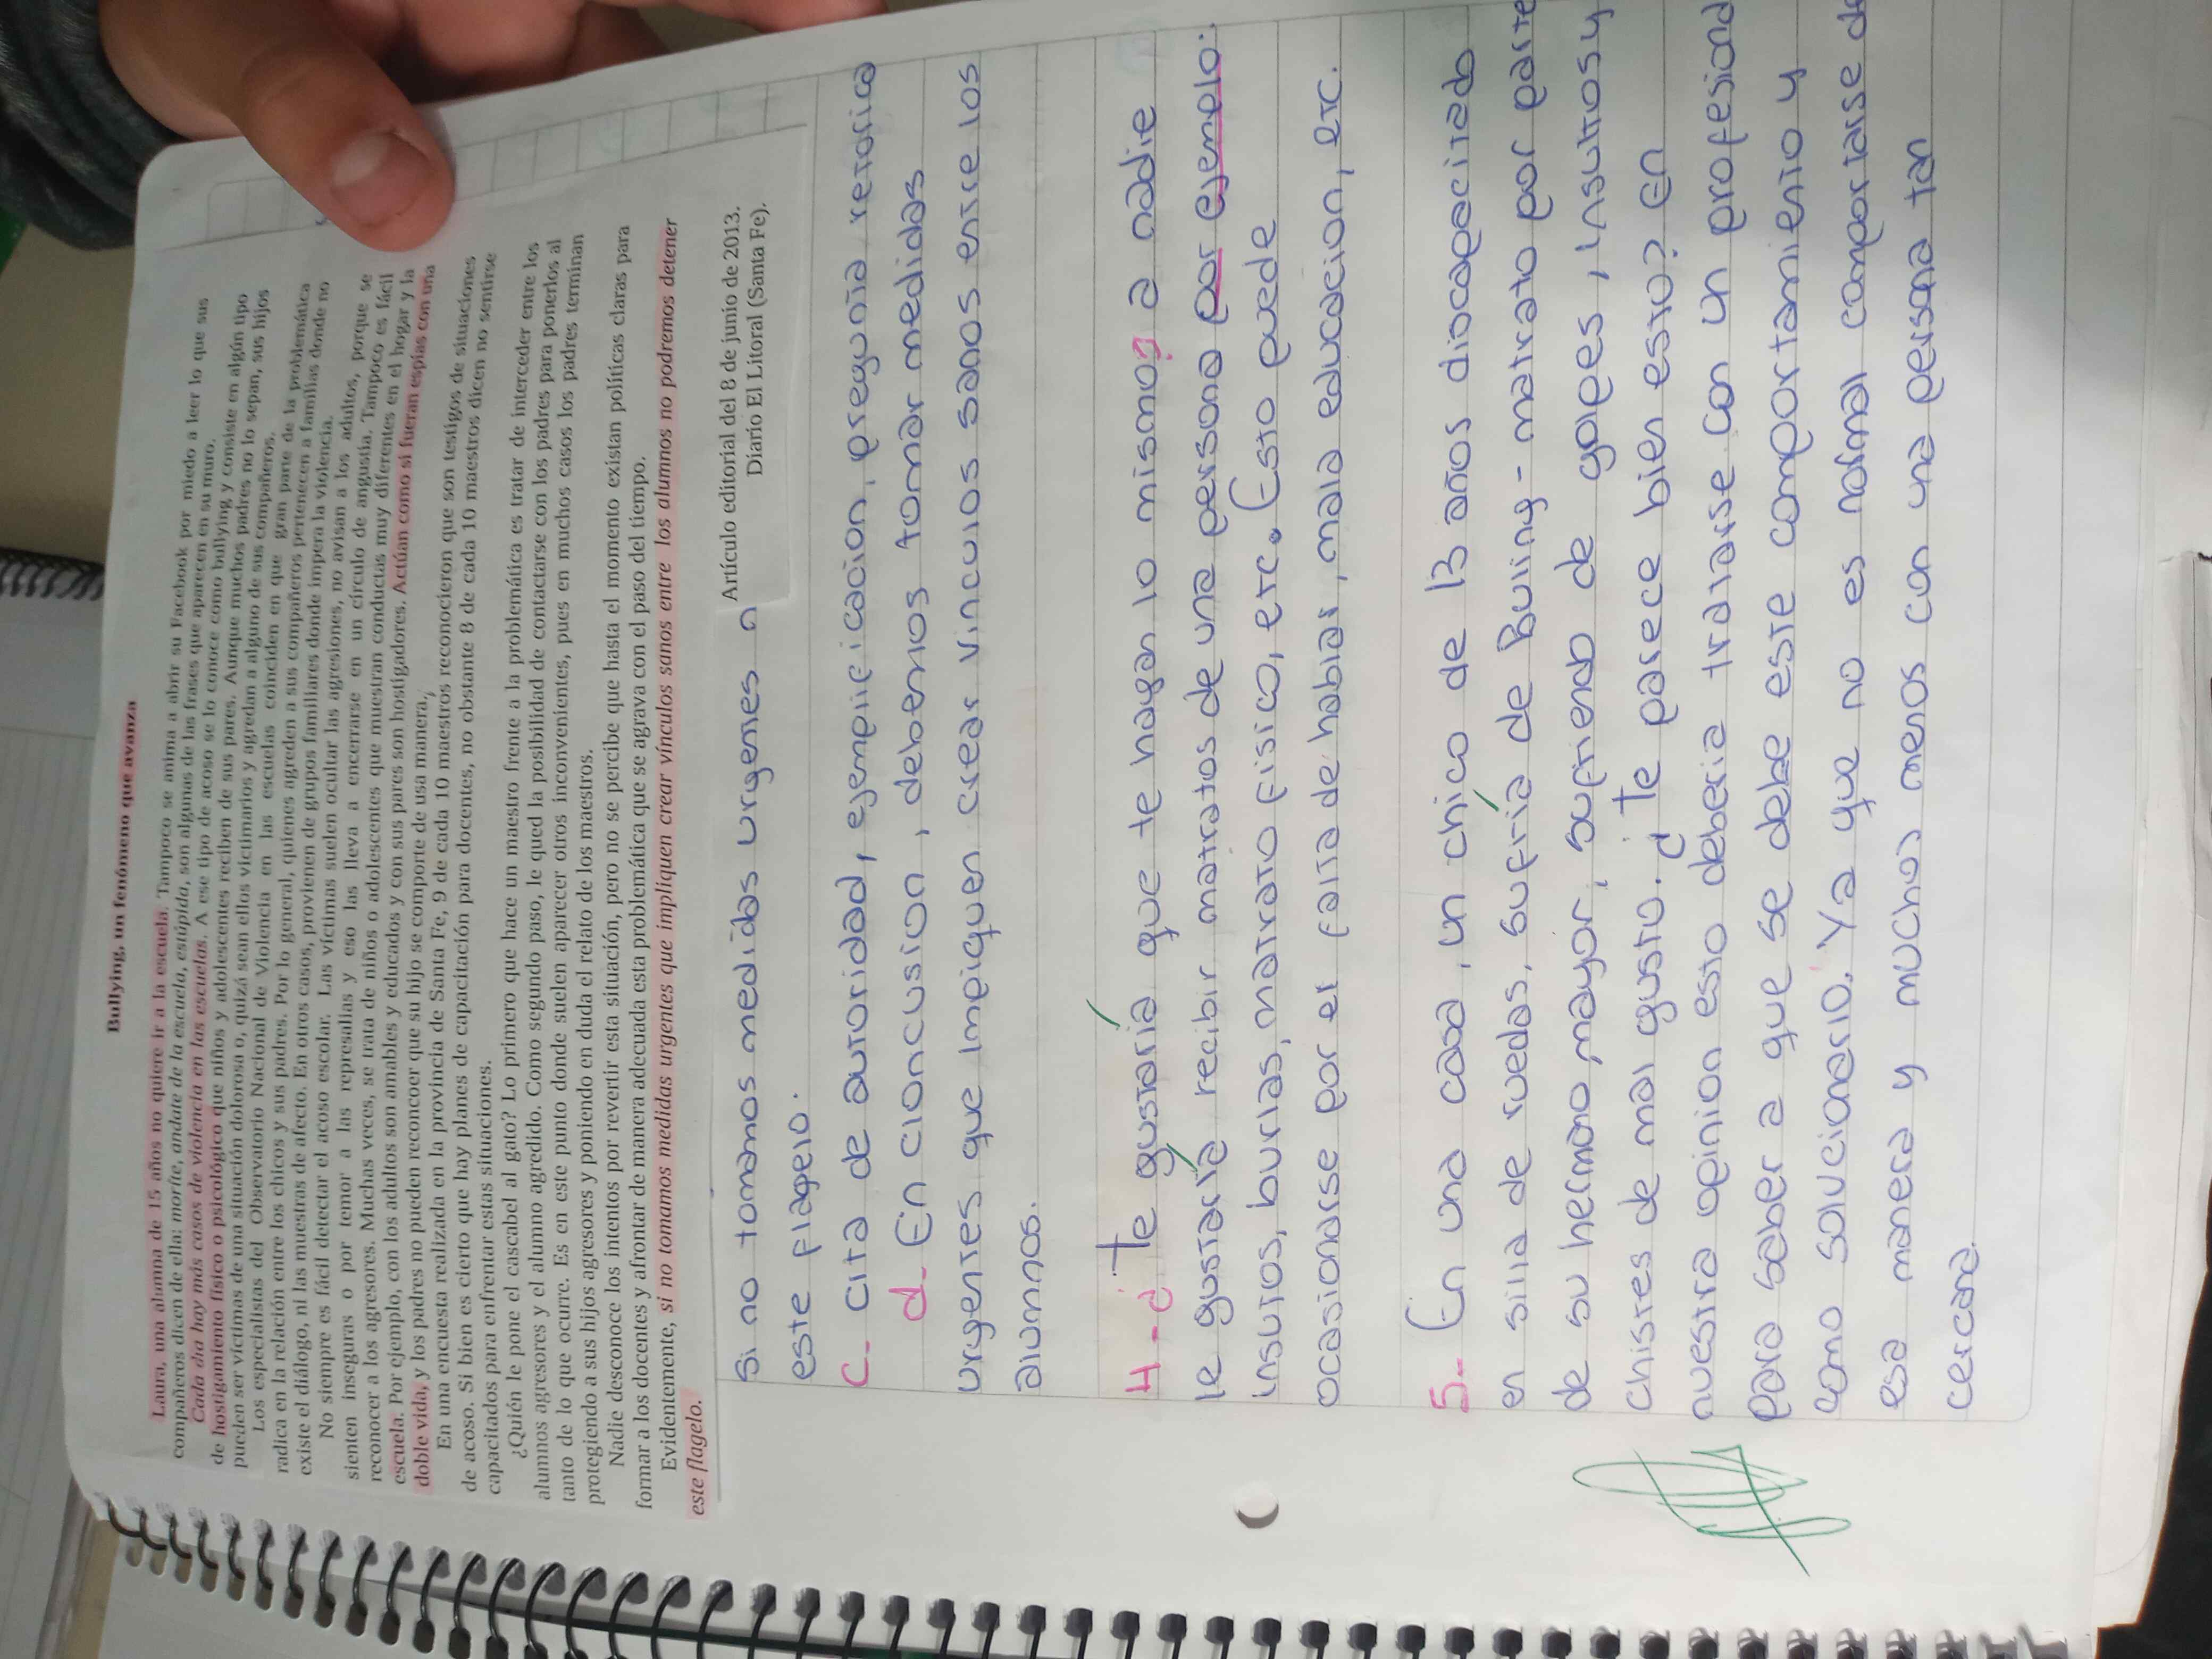 Bullying, un fenómeno que avanza
Laura, una alumna de 15 años no quiere ir a la escuela. Tampoco se anima a abrir su Facebook por miedo a leer lo que sus
compañeros dicen de ella: morite, andate de la escuela, estúpida, son algunas de las frases que aparecen en su muro.
Cada día hay más casos de violencia en las escuelas. A ese tipo de acoso se lo conoce como bullying y consiste en algún tipo
de hostigamiento físico o psicológico que niños y adolescentes reciben de sus pares. Aunque muchos padres no lo sepan, sus hijos
pueden ser víctimas de una situación dolorosa o, quizá sean ellos victimarios y agredan a alguno de sus compañeros.
Los especialistas del Observatorio Nacional de Violencia en las escuelas coinciden en que gran parte de la problemática
radica en la relación entre los chicos y sus padres. Por lo general, quienes agreden a sus compañeros pertenecen a familias donde no
existe el diálogo, ni las muestras de afecto. En otros casos, provienen de grupos familiares donde impera la violencia.
No siempre es fácil detectar el acoso escolar. Las víctimas suelen ocultar las agresiones, no avisan a los adultos, porque se
sienten inseguras o por temor a las represalias y eso las lleva a encerrarse en un círculo de angustia. Tampoco es fácil
reconocer a los agresores. Muchas veces, se trata de niños o adolescentes que muestran conductas muy diferentes en el hogar y la
escuela. Por ejemplo, con los adultos son amables y educados y con sus pares son hostigadores. Actúan como si fueran espías con una
doble vida, y los padres no pueden reconcer que su hijo se comporte de usa manera,
En una encuesta realizada en la provincia de Santa Fe, 9 de cada 10 maestros reconocieron que son testigos de situaciones
de acoso. Si bien es cierto que hay planes de capacitación para docentes, no obstante 8 de cada 10 maestros dicen no sentirse
capacitados para enfrentar estas situaciones.
¿Quién le pone el cascabel al gato? Lo primero que hace un maestro frente a la problemática es tratar de interceder entre los
alumnos agresores y el alumno agredido. Como segundo paso, le qued la posibilidad de contactarse con los padres para ponerlos al
tanto de lo que ocurre. Es en este punto donde suelen aparecer otros inconvenientes, pues en muchos casos los padres terminan
protegiendo a sus hijos agresores y poniendo en duda el relato de los maestros.
Nadie desconoce los intentos por revertir esta situación, pero no se percibe que hasta el momento existan políticas claras para
formar a los docentes y afrontar de manera adecuada esta problemática que se agrava con el paso del tiempo.
Evidentemente, si no tomamos medidas urgentes que impliquen crear vínculos sanos entre los alumnos no podremos detener
este flagelo.
Artículo editorial del 8 de junio de 2013.
Diario El Litoral (Santa Fe).
si no tomamos medidas urgentes n
este flagelo.
C- cita de autoridad, ejemplificacion, pregunta retorica
d- En cloncusion, debemos tomar medidas
urgentes que impliquen crear vinculos sanos entre los
alumnos.
4-¿Te gustaría que te hagan lo mismo? a nadie
le gustaría recibir maltratos de una persona por ejemplo:
insultos, burlas, maltrato fisico, etc. Esto puede
ocasionarse por el falta de hablar, mala educacion, etc.
5- En una casa, un chico de 13 años discapacitado
en silla de ruedas, sufría de Bulling-maltrato por parte
de su hermano mayor, sufriendo de golpes, insultos y
chistes de mal gusto. ¿Te parece bien esto? En
nuestra opinion esto deberia tratarse con un profesional
para saber a que se debe este comportamiento y
como solucionarlo. Ya que no es normal comportarse de
esa manera y muchos menos con una persona tan
cercana.